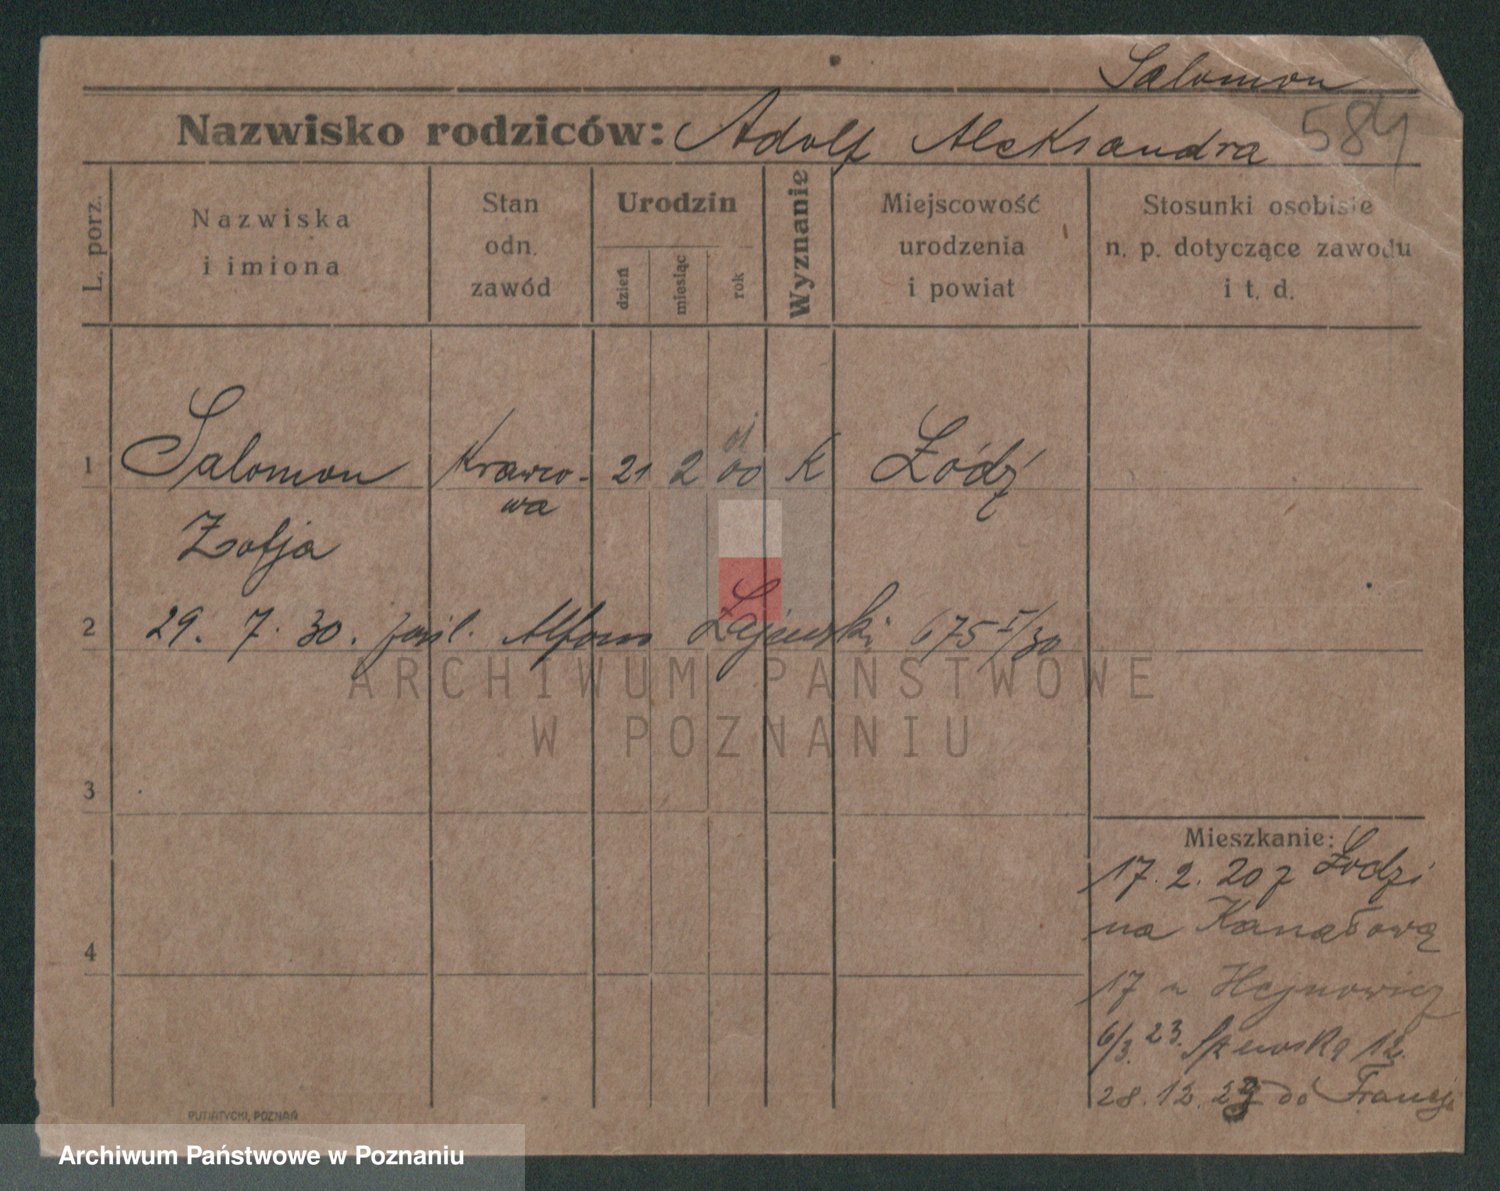 Salomon
Nazwisko rodziców: Adolf Aleksandra 584
L. porz.
Nazwiska
i imiona
Stan
odn.
zawód
Urodzin
dzień
miesiąc
rok
Wyznanie
Miejscowość
urodzenia
i powiat
Stosunki osobiste
n. p. dotyczące zawodu
i t. d.
01
1 Salomon Krawco- 21 2 00 K Łódź
wa
Zofja
2 29. 7. 30. zaśl. Alfons 675 I/30
ARCHIWUM PAŃSTWOWE
W POZNANIU
3
Mieszkanie:
17. 2. 20 z Łodzi
na Kanałową
4
17 u Hejnowicz
6/3. 23. 12
28. 12. do Francji
PUTIATYCKI, POZNAŃ
Archiwum Państwowe w Poznaniu